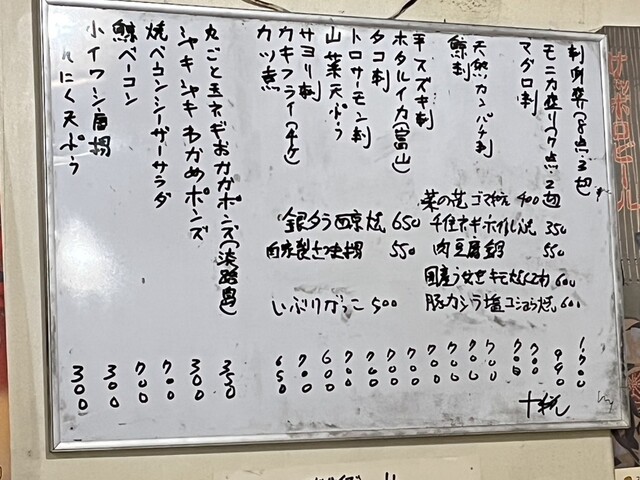 刺身盛(8点・3切) 1700
モニカ盛り(7点・2切) 990
マグロ刺 700
天然カンパチ刺 700
鯨刺 700
平スズキ刺 700
ホタルイカ(富山) 700
タコ刺 700
トロサーモン刺 700
山菜天ぷら 600
サヨリ刺 700
カキフライ(4ケ)
カツ煮 650
丸ごと玉ネギおかかポンズ(淡路島) 350
シャキシャキわかめポンズ 300
焼ベーコンシーザーサラダ 700
鯨ベーコン 700
小イワシ唐揚 300
にんにく天ぷら 300
菜の花ゴマ和え 400
千住ネギホイル焼 350
肉豆腐鍋 550
国産うなぎキモ 600
豚カシラ塩コショウ焼 600
銀ダラ西京焼 650
自家製さつま揚 550
いぶりがっこ 500
十税
サッポロビール